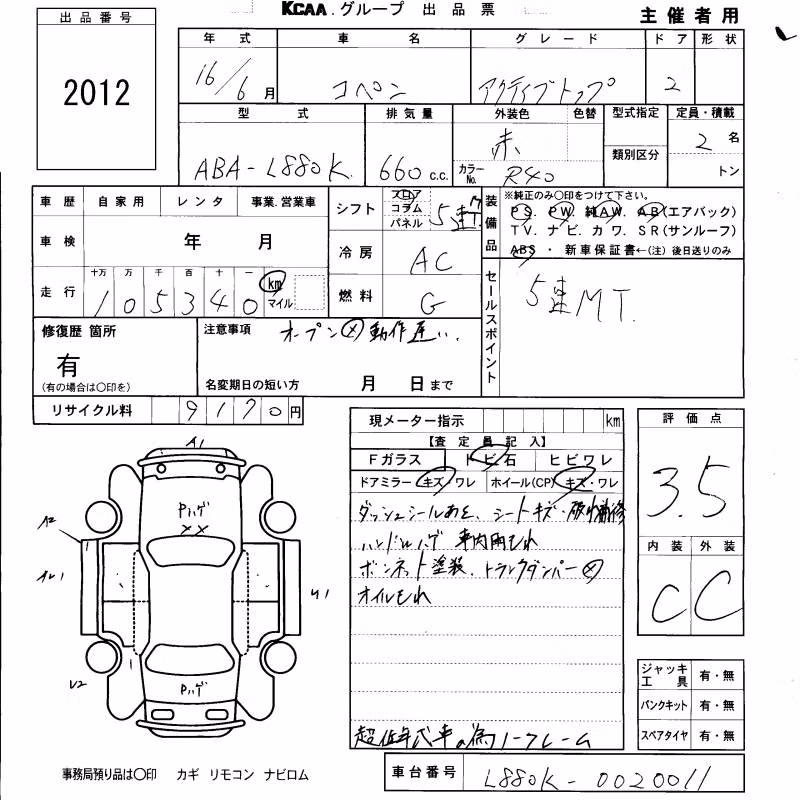 KCAA.グループ 出品票
主催者用
出品番号
2012
年式 車名 グレード ドア 形状
16/6月 コペン アクティブトップ 2
型式 排気量 外装色 色替 型式指定 定員・積載
ABA-L880K 660c.c. 赤 カラーNo. R40 類別区分 2名 トン
車歴 自家用 レンタ 事業.営業車
シフト フロア コラム パネル 5速
装備品 ※純正のみ〇印をつけて下さい。
PS. PW. 純AW. AB(エアバック)
TV. ナビ. カワ. SR(サンルーフ)
ABS ・ 新車保証書←(注)後日送りのみ
車検 年 月
冷房 AC
走行 十万 万 千 百 十 一
105340 km マイル
燃料 G
セールスポイント 5速MT.
修復歴 箇所
有
(有の場合は〇印を)
注意事項 オープン㋱動作遅い.
名変期日の短い方 月 日まで
リサイクル料 9170円
現メーター指示 km
【査定員記入】
Fガラス トビ石 ヒビワレ
ドアミラー キズ・ワレ ホイール(CP) キズ・ワレ
ダッシュシールあと、シートキズ・破れ補修
ハンドルハゲ 車内雨もれ
ボンネット塗装、トランクダンパー
オイルもれ
超低年式車の為ノークレーム
評価点
3.5
内装 外装
C C
ジャッキ工具 有・無
パンクキット 有・無
スペアタイヤ 有・無
A1
Pハゲ
××
A2
U1
U2
Pハゲ
事務局預り品は〇印 カギ リモコン ナビロム
車台番号 L880K-0020011